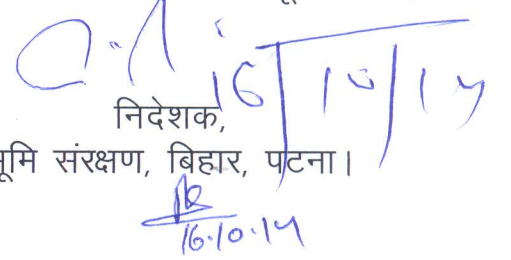 16/10/14
निदेशक,
भूमि संरक्षण, बिहार, पटना।
16.10.14